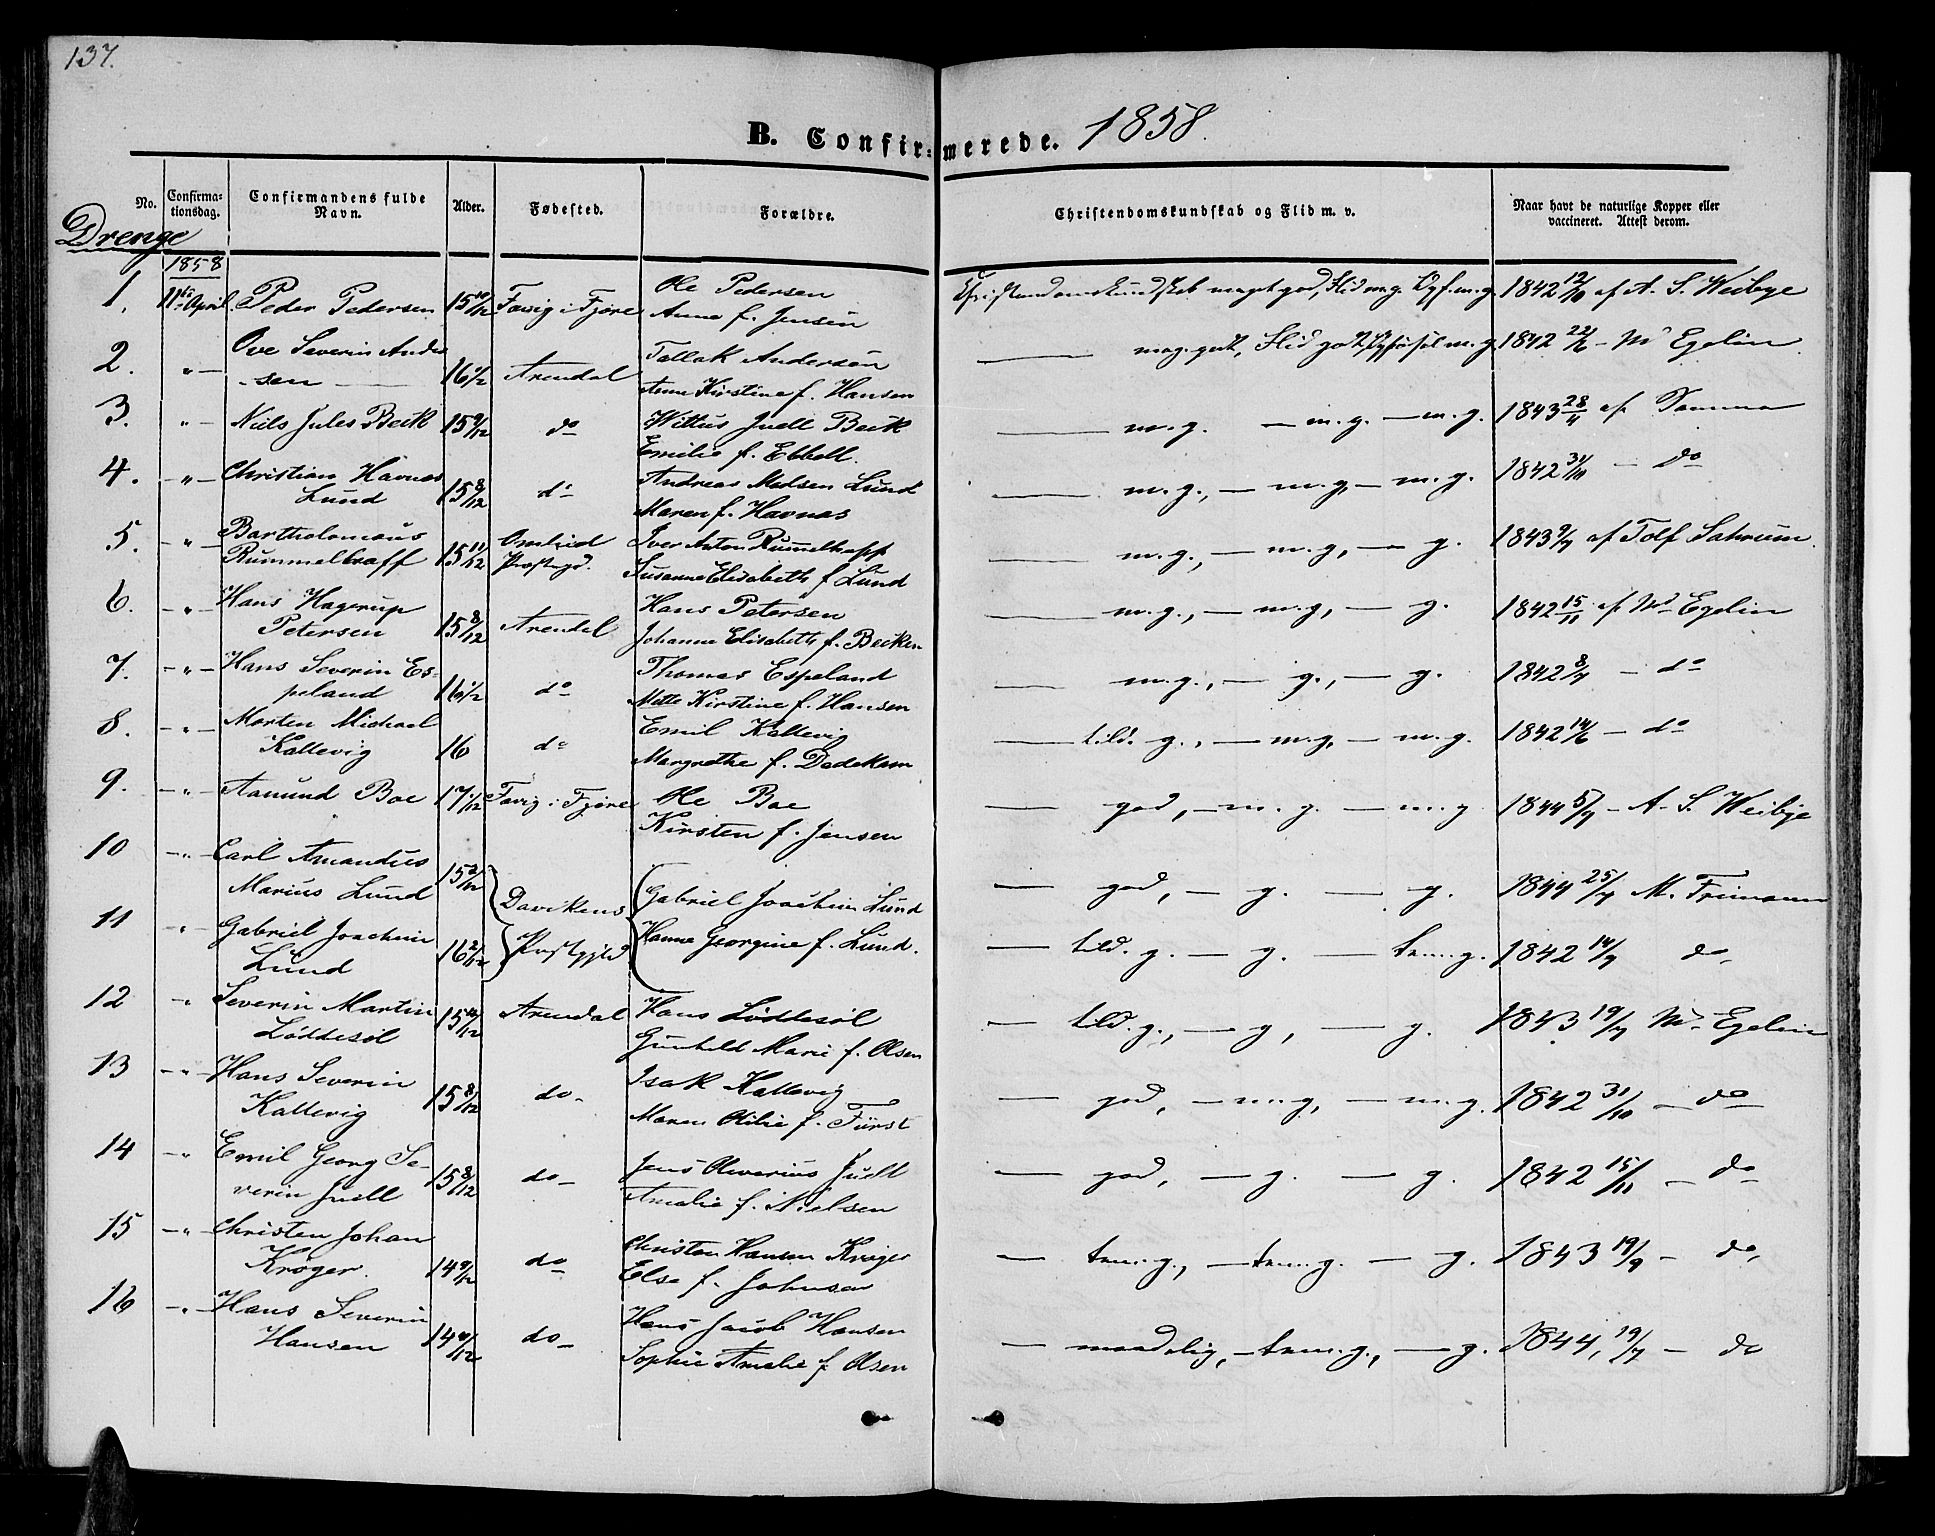 137.
B. Confir-merede. 1858.
No.
Confirma-tionsdag.
Confirmandens fulde Navn.
Alder.
Fødested.
Forældre.
Christendomskundskab og Flid m. v.
Naar havt de naturlige Kopper eller vaccineret. Attest derom.
Drenge
1858
1. 11te April. Peder Pedersen 15 10/12 Ole Pedersen Christendomskundskab meget god, Flid m.g. Opf. m.g. 1842 12/10 af A. S. Weibye
Anne f. Jensen
2. -"- Ove Severin Ander- Tallak Andersen mag. godt, Flid godt, m.g. 1842 22/6 - Md Egelin
-sen 16 1/2 Arendal Anne Kirstine f. Hansen
3. " - Niels Jules Beck 15 9/12 do Wittus Juell Beck m.g. - m.g. - m.g. 1843 28/4 af Samme
Emilie f. Ebbell.
4. -"- Christian Havnas Andreas Madsen Lund m.g., - m.g, - m.g. 1842 31/10 - do
Lund 15 8/12 do Maren f. Havnas
5. -"- Bartholomæus Iver Anton Rummelhoff m.g., - m.g, - g. 1843 9/7 af Tolf
Rummelhoff 15 11/12 Præstegd. Susanne Elisabeth f Lund
6. -"- Hans Hagerup Hans Petersen m.g., - m.g, - g. 1842 15/11 af Md Egelin
Petersen 15 8/12 Arendal Johanne Elisabeth f. Becken
7. -"- Hans Severin Es- Thomas Espeland m.g., - g., - g. 1842 8/7 - do
peland 16 1/2 do Mette Kirstine f. Hansen
8. -"- Morten Michael Emil Kallevig tild. g., - m.g, - m.g. 1842 14/6 - do
Kallevig 16 do Margrethe f. Dedekam
9. -"- Aamund Boe 17 1/12 Ole Boe god, - m.g. - m.g 1844 5/7 - A. S. Weibye
Kirsten f. Jensen
10 -"- Carl Amandus
Marius Lund 15 2/12 Davikens Gabriel Joachim Lund god, - g. - g. 1844 25/7 M. Frimann
11 -"- Gabriel Joachim Præstgjld Hanne Georgine f. Lund. tild. g. - g. - tem.g. 1842 14/9 do,
Lund 16 2/12
12 " Severin Martin Arendal Hans Løddesøl tild. g., - g, - g. 1843 19/7 Md. Egelin
Løddesøl 15 Gunhild Marie f. Olsen
13 -"- Hans Severin Isak Kallevig god, - m.g, - m.g. 1842 31/10 - do
Kallevig 15 8/12 do- Maren Otilie f. Fürst
14 -"- Emil Georg Se- Jens Oliverius Juell god, - g. - g. 1842 15/11 - do
verin Juell 15 8/12 do- Amalie f. Nielsen
15 -"- Christen Johan do Christen Hansen Krøger tem.g., - tem.g. - g. 1843 19/9 - do,
Krøger. 14 9/12 Else f. Johnsen
16 -"- Hans Severin Hans Jacob Hansen maadelig, - tem.g., - g. 1844, 19/7 - do
Hansen 14 do- Sophie Amalie f Olsen